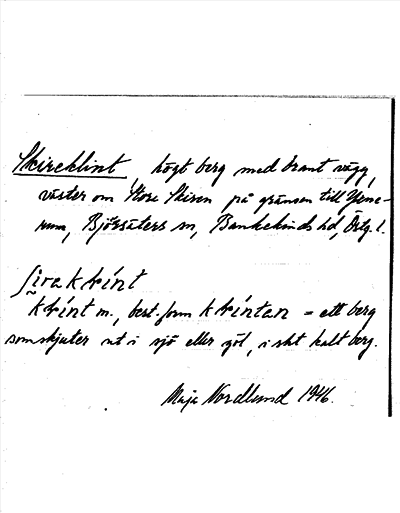 Skireklint, högt berg med brant vägg,
väster om Stora Skiren på gränsen till Yxne-
rum, Björsäters sn, Bankekinds hd, Östg. l.
ʃirakklínt
klínt m., best. form klíntan = ett berg
som skjuter ut i sjö eller göl, i sht kalt berg.
Maja Nordlund 1946.